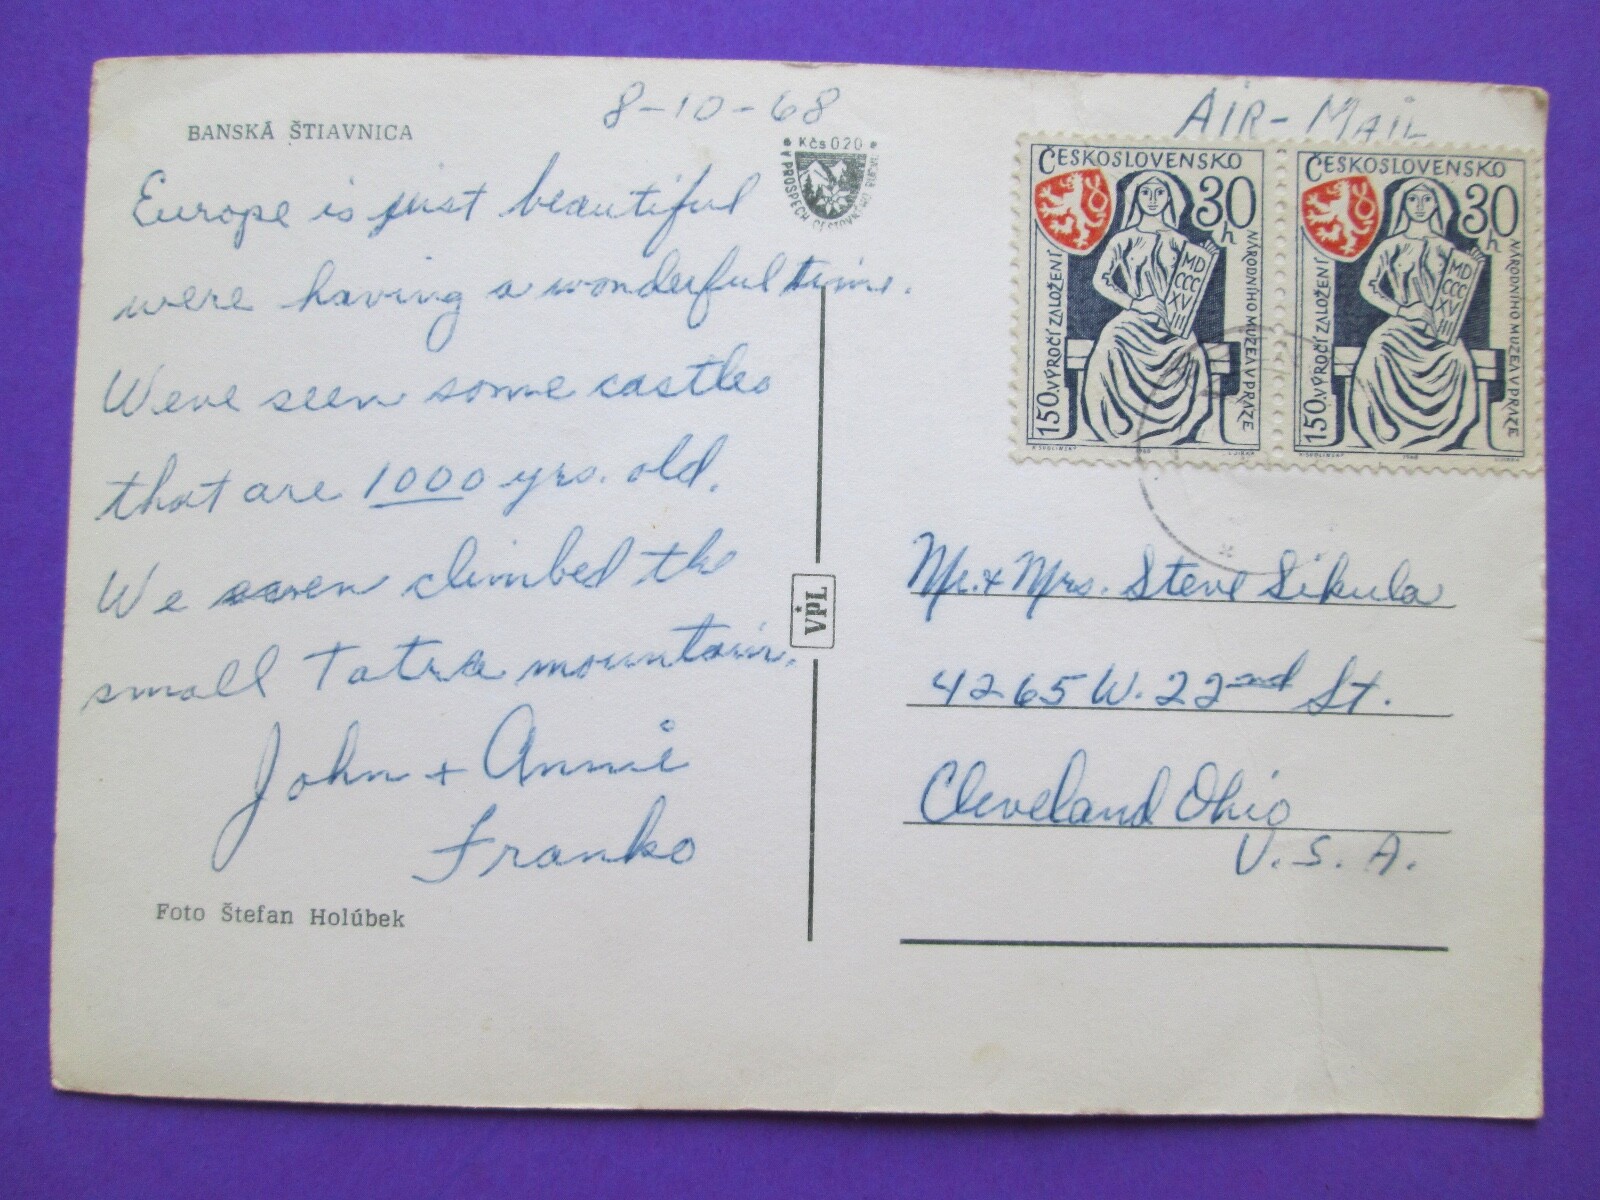 8-10-68
AIR-MAIL
BANSKÁ ŠTIAVNICA
Europe is just beautiful
were having a wonderful time.
Weve seen some castles
that are 1000 yrs. old.
We even climbed the
small Tatra mountain.
John + Annie
Franko
Foto Štefan Holúbek
• Kčs 0.20 •
V PROSPECH CESTOVNÉHO RUCHU
VPL
ČESKOSLOVENSKO
30h
150. VÝROČÍ ZALOŽENÍ
NÁRODNÍHO MUZEA V PRAZE
MD
CCC
XV
III
1968
ČESKOSLOVENSKO
30h
150. VÝROČÍ ZALOŽENÍ
NÁRODNÍHO MUZEA V PRAZE
MD
CCC
XV
III
1968
Mr. & Mrs. Steve Sikula
4265 W. 22nd St.
Cleveland Ohio
U.S.A.